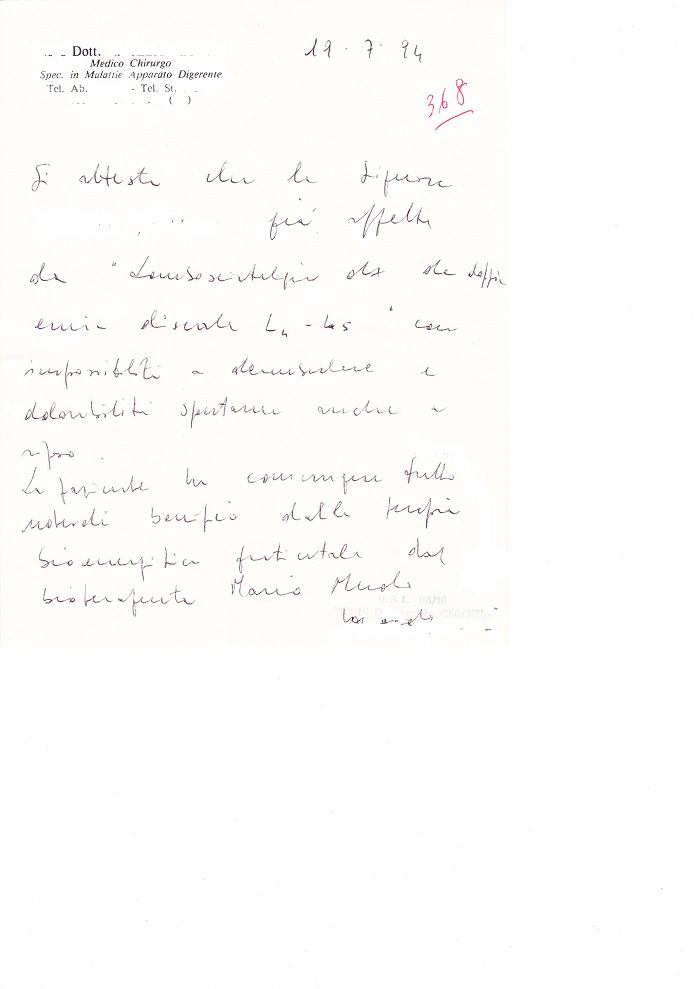 Dott.
19 - 7 - 94
Medico Chirurgo
Spec. in Malattie Apparato Digerente
Tel. Ab. - Tel. St.
( )
368
Si attesta che la Signora
già affetta
da "Lombosciatalgia dx da doppia
ernia discale L4-L5" con
impossibilità a deambulare e
dolorabilità spontanea anche a
riposo.
La paziente ha comunque tratto
notevoli benefici dalla terapia
bioenergetica praticatale dal
bioterapeuta Mario